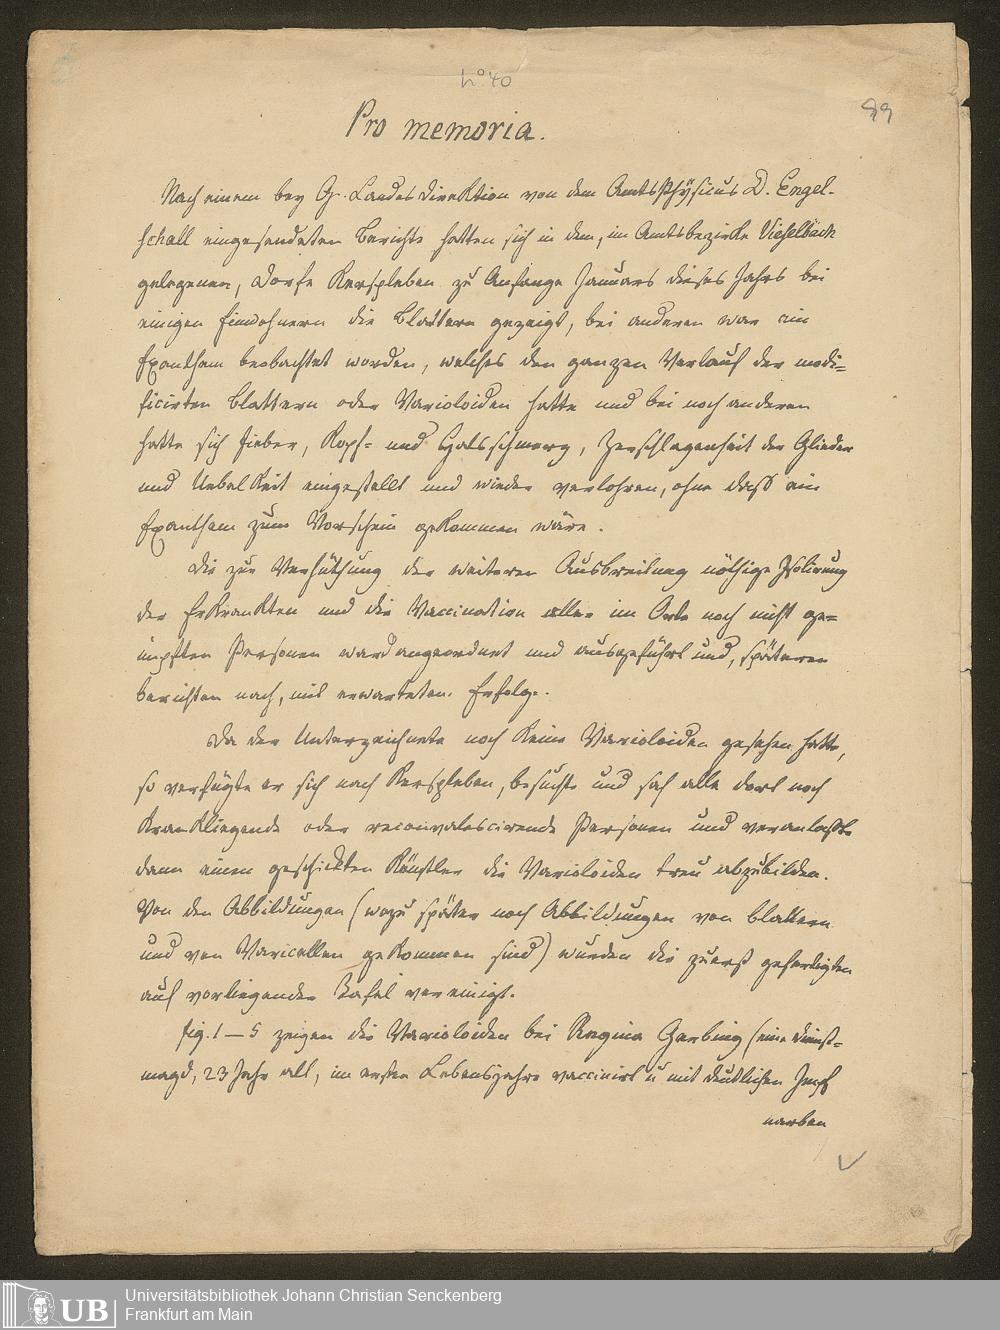 No 40
99
Pro memoria.
Nach einem bey Gr. Landesdirektion von dem Amtsphÿsicus D. Engel-
schall eingesendeten Berichte hatten sich in dem, im Amtsbezirke Vieselbach
gelegenen, Dorfe Kerspleben zu Anfange Januars dieses Jahrs bei
einigen Einwohnern die Blattern gezeigt, bei anderen war ein
Exanthem beobachtet worden, welches den ganzen Verlauf der modi=
ficirten Blattern oder Varioloiden hatte und bei noch anderen
hatte sich Fieber, Kopf- und Halsschmerz, Zerschlagenheit der Glieder
und Uebelkeit eingestellt und wieder verlohren, ohne daß ein
Exanthem zum Vorschein gekommen wäre.
Die zur Verhüthung der weiteren Ausbreitung nöthige Isolirung
der Erkrankten und die Vaccination aller im Orte noch nicht ge=
impften Personen ward angeordnet und ausgeführt und, späteren
Berichten nach, mit erwartetem Erfolg.
Da der Unterzeichnete noch keine Varioloiden gesehen hatte,
so verfügte er sich nach Kerspleben, besuchte und sah alle dort noch
krankliegende oder reconvalescirende Personen und veranlaßte
dann einen geschickten Künstler die Varioloiden treu abzubilden.
Von den Abbildungen (wozu später noch Abbildungen von Blattern
und von Varicellen gekommen sind) wurden die zuerst gefertigten
auf vorliegender Tafel vereinigt.
Fig. 1 – 5 zeigen die Varioloiden bei Regina Gerbing (eine Dienst=
magd, 23 Jahr alt, im ersten Lebensjahre vaccinirt u mit deutlichen Impf
narben
UB
Universitätsbibliothek Johann Christian Senckenberg
Frankfurt am Main